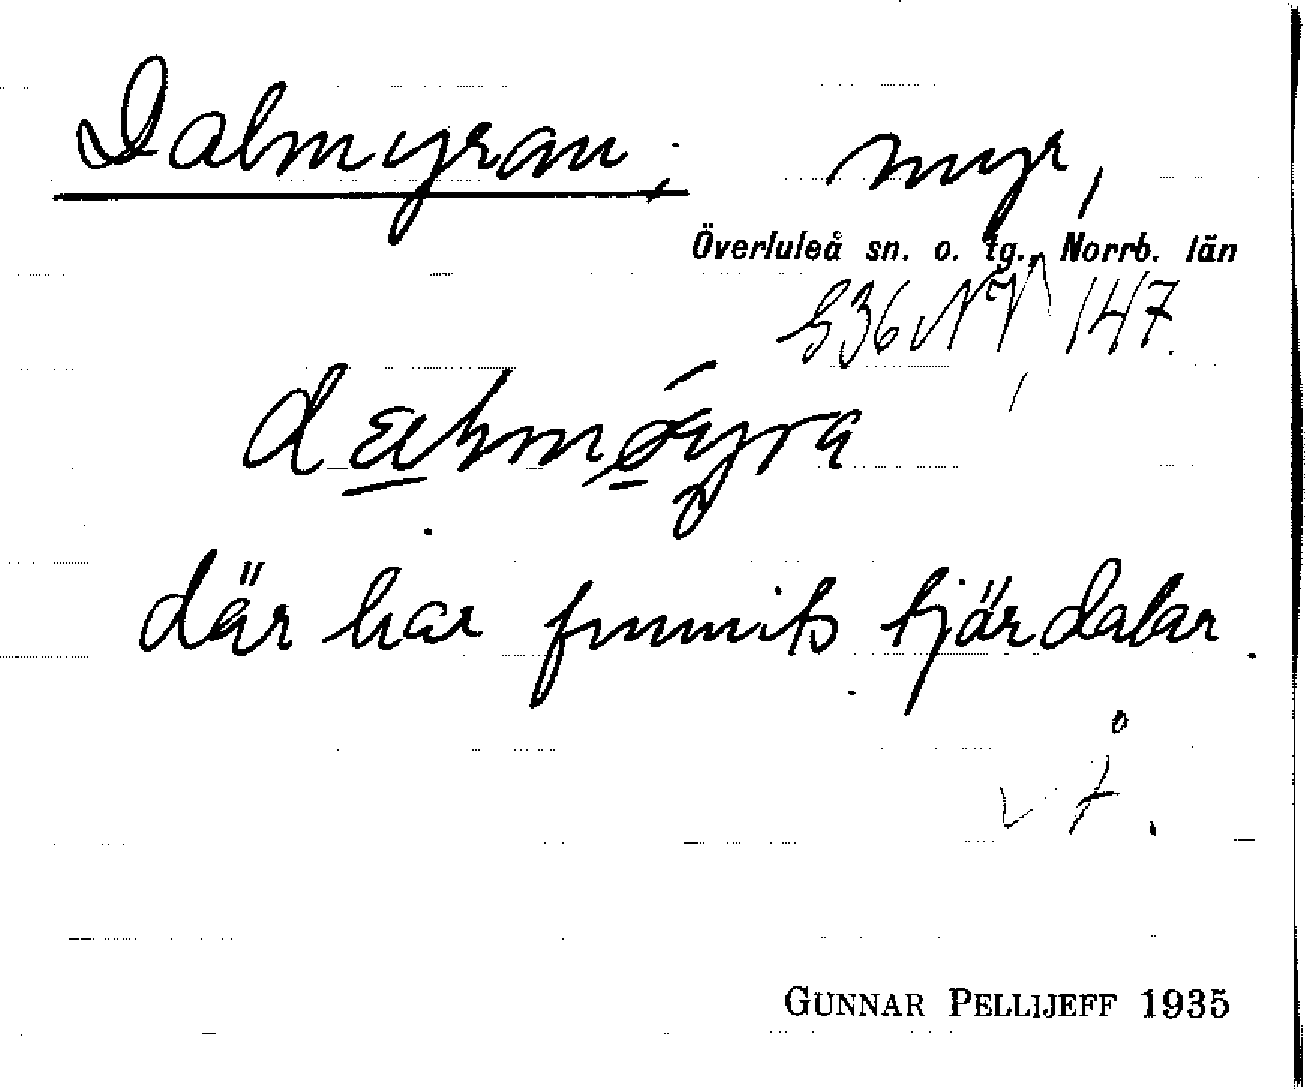 Dalmyran, myr,
Överluleå sn. o. tg., Norrb. län
147.
där har funnits tjärdalar.
GUNNAR PELLIJEFF 1935